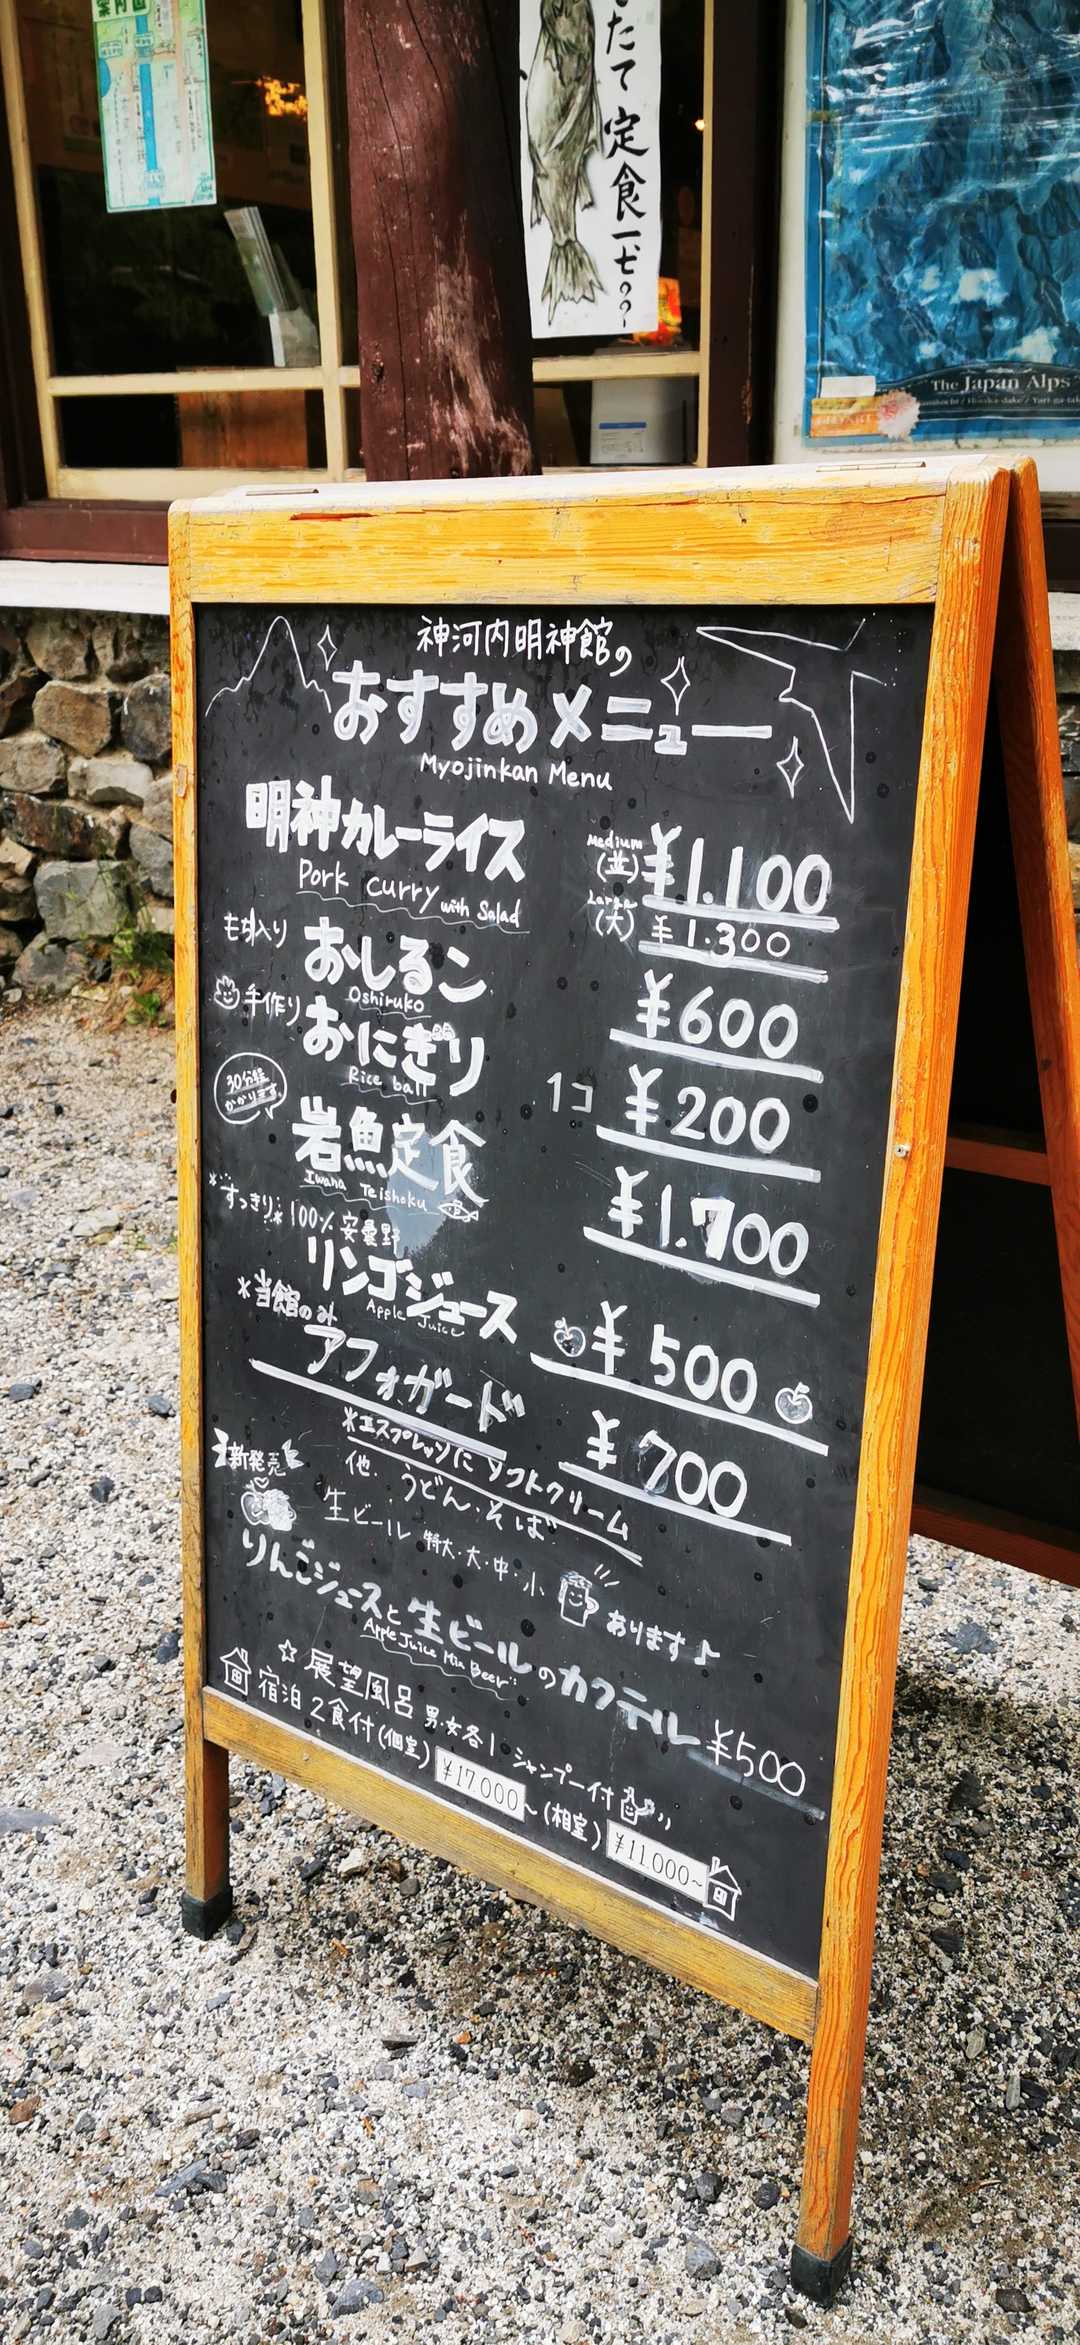 案内図
たて定食一ど??
The Japan Alps
神河内明神館の
おすすめメニュー
Myojinkan Menu
明神カレーライス
Pork curry with Salad
Medium
(並) ¥1.100
Large
(大) ¥1.300
もち入り おしるこ ¥600
Oshiruko
手作り おにぎり 1コ ¥200
Rice ball
30分程
かかります
岩魚定食 ¥1.700
Iwana Teishoku
*すっきり* 100% 安曇野
リンゴジュース ¥500
Apple Juice
*当館のみ
アフォガード ¥700
*エスプレッソにソフトクリーム
他. うどん・そば
生ビール 特大・大・中・小 あります♪
新発売
りんごジュースと生ビールのカクテル ¥500
Apple Juice Mix Beer
☆展望風呂 男・女各1 シャンプー付
宿泊 2食付(個室) ¥17.000~ (相室) ¥11.000~